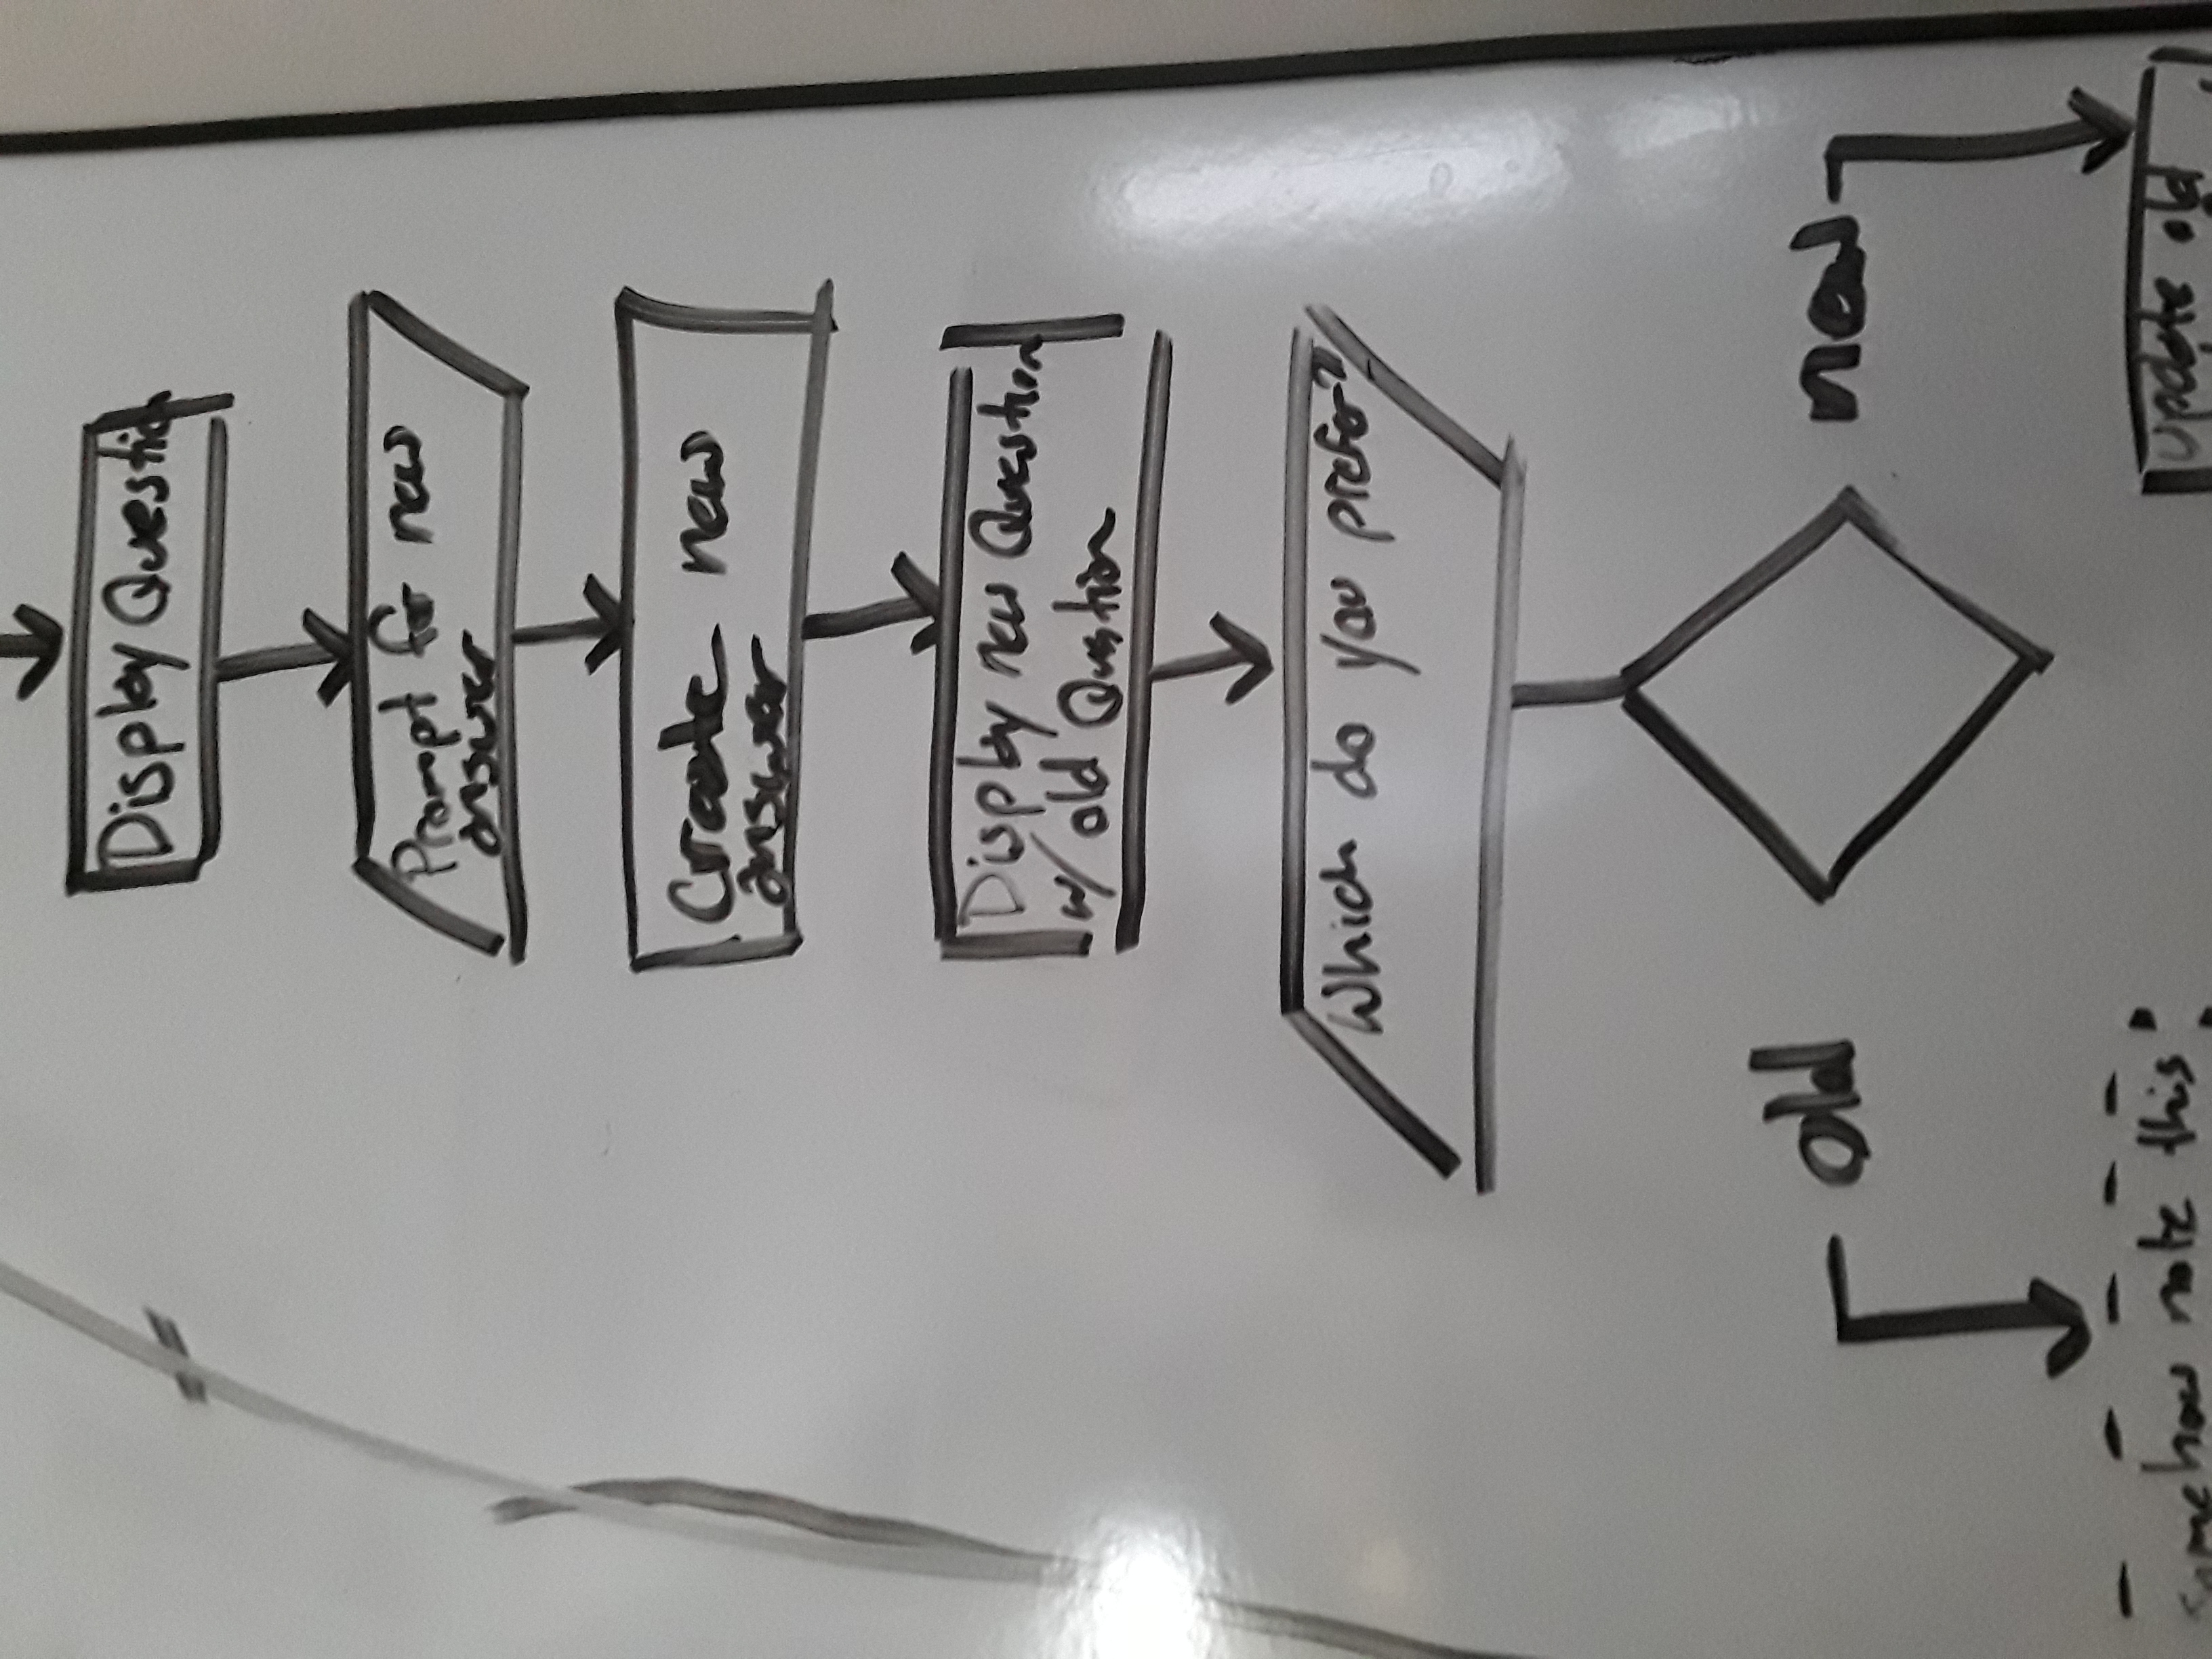 Display Question
Prompt for new
answer
Create new
answer
Display new Question
w/ old Question
Which do you prefer?
old
new
somehow note this
update old